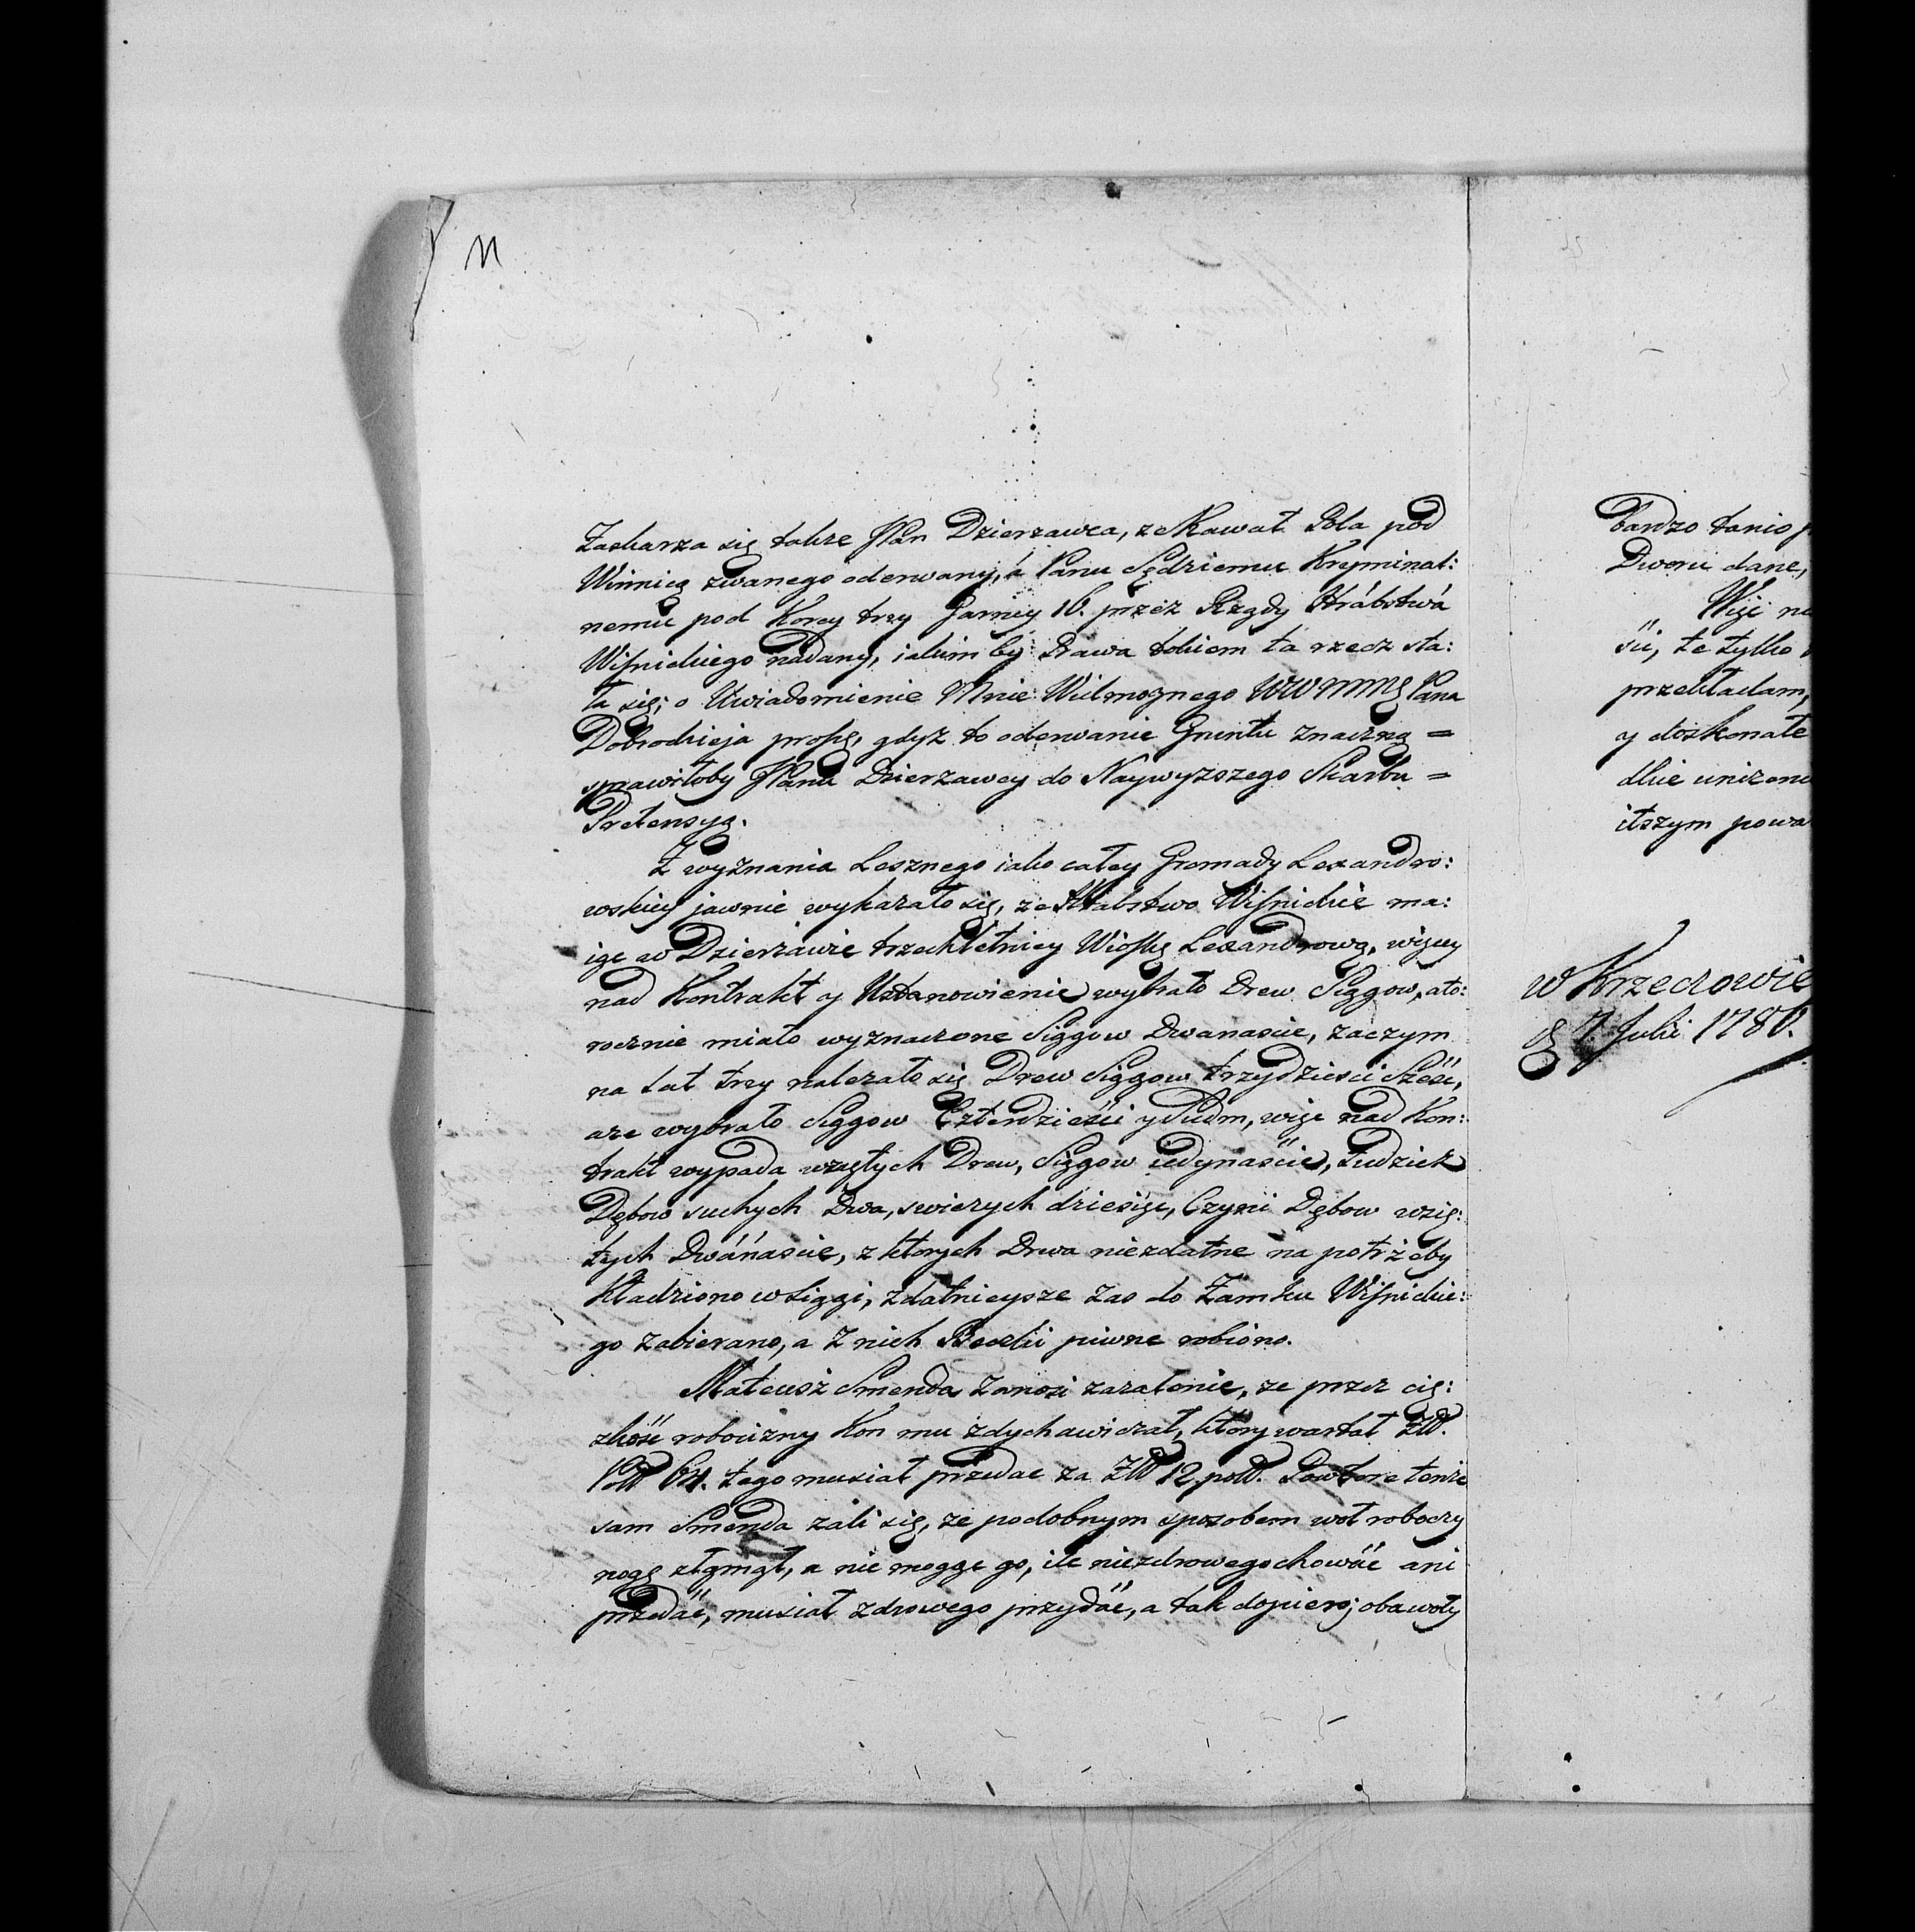 11
Zaskarza się takze JPan Dzierzawca, ze Kawał Pola pod
Winnicą zwanego oderwany, á Panu Sędziemu Kryminal:
nemu pod Korcy trzy Garnicy 16. przez Rządy Hrábstwá
Wiśnickiego nadany, iakim by Prawa tokiem ta rzecz sta:
ła się; o Uwiadomienie Mnie Wielmoznego WWMM Pana
Dobrodzieja proszę, gdyz to oderwanie Gruntu znaczną =
sprawiłoby JPanu Dzierzawcy do Naywyzszego Skarbu =
Pretensyą.
Z wyznania Lesznego iako całey Gromady Lexandro:
wskiey jawnie wykazało się, ze Hrabstwo Wiśnickie ma:
iąc w Dzierżawie trzechletniey Wioskę Lexandrową, więcey
nad Kontrakt y Ustanowienie wybrało Drew Siągow, ato:
rocznie miało wyznaczone Siągow Dwanascie, zaczym
na lat trzy nalezało się Drew Siągow trzydziesci Sześć,
aze wybrało Siągow Czterdzieści y Siedm, więc nad Kon:
trakt wypada wziętych Drew, Siągow iedynaście, tudziesz
Dębow suchych Dwa, swiezych dziesięc, Czyni Dębow wzię:
tych Dwánáscie, z ktorych Drwa niezdatne na potrzeby
kładziono w Siągi, zdatnieysze zas do Zamku Wiśnickie:
go zabierano, a z nich Beczki piwne robiono.
Mateusz Smenda zanosi zazalenie, ze przez cię:
zkość robocizny Kon mu zdychawiczał, ktory wartał Zł.
Pol 64. tego musiał przedac za Zł 12 pol. Powtore tenże
sam Smenda zali się, ze podobnym sposobem woł roboczy
nogę złamał, a nie mogąc go, ile niezdrowego chowáć ani
przedáć, musiał zdrowego przydáć, a tak dopiero; oba woły
bardzo tanio p
Dworu dane,
Więc na
si, te tylko
przekładam,
y doskonałe
dkie unizon
itszym powa
w Krzeczowie
d 7. Julii 1786.